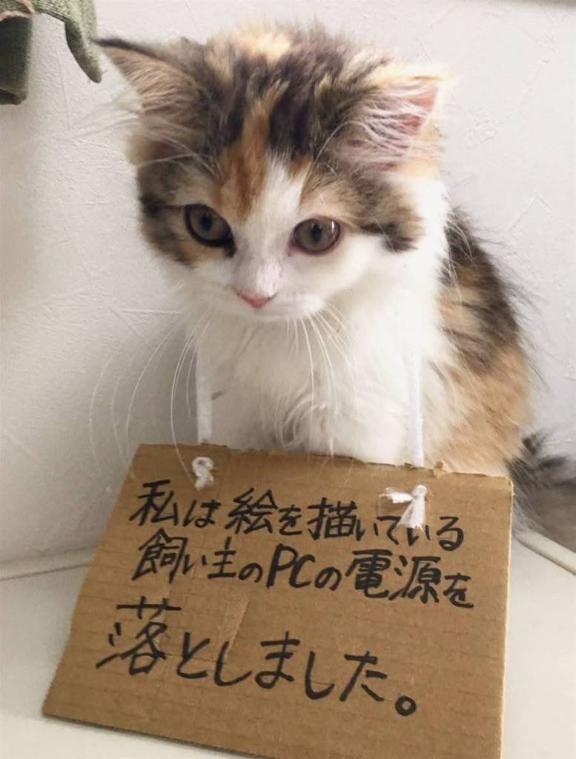 私は絵を描いている
飼い主のPCの電源を
落としました。